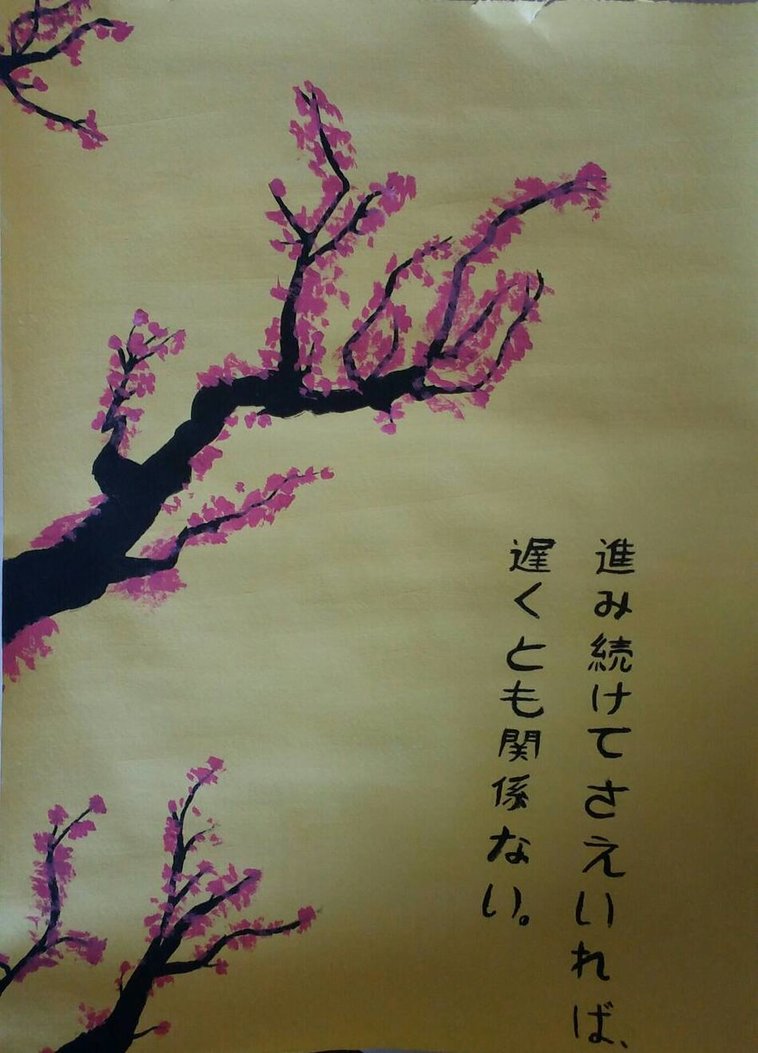 進み続けてさえいれば、
遅くとも関係ない。